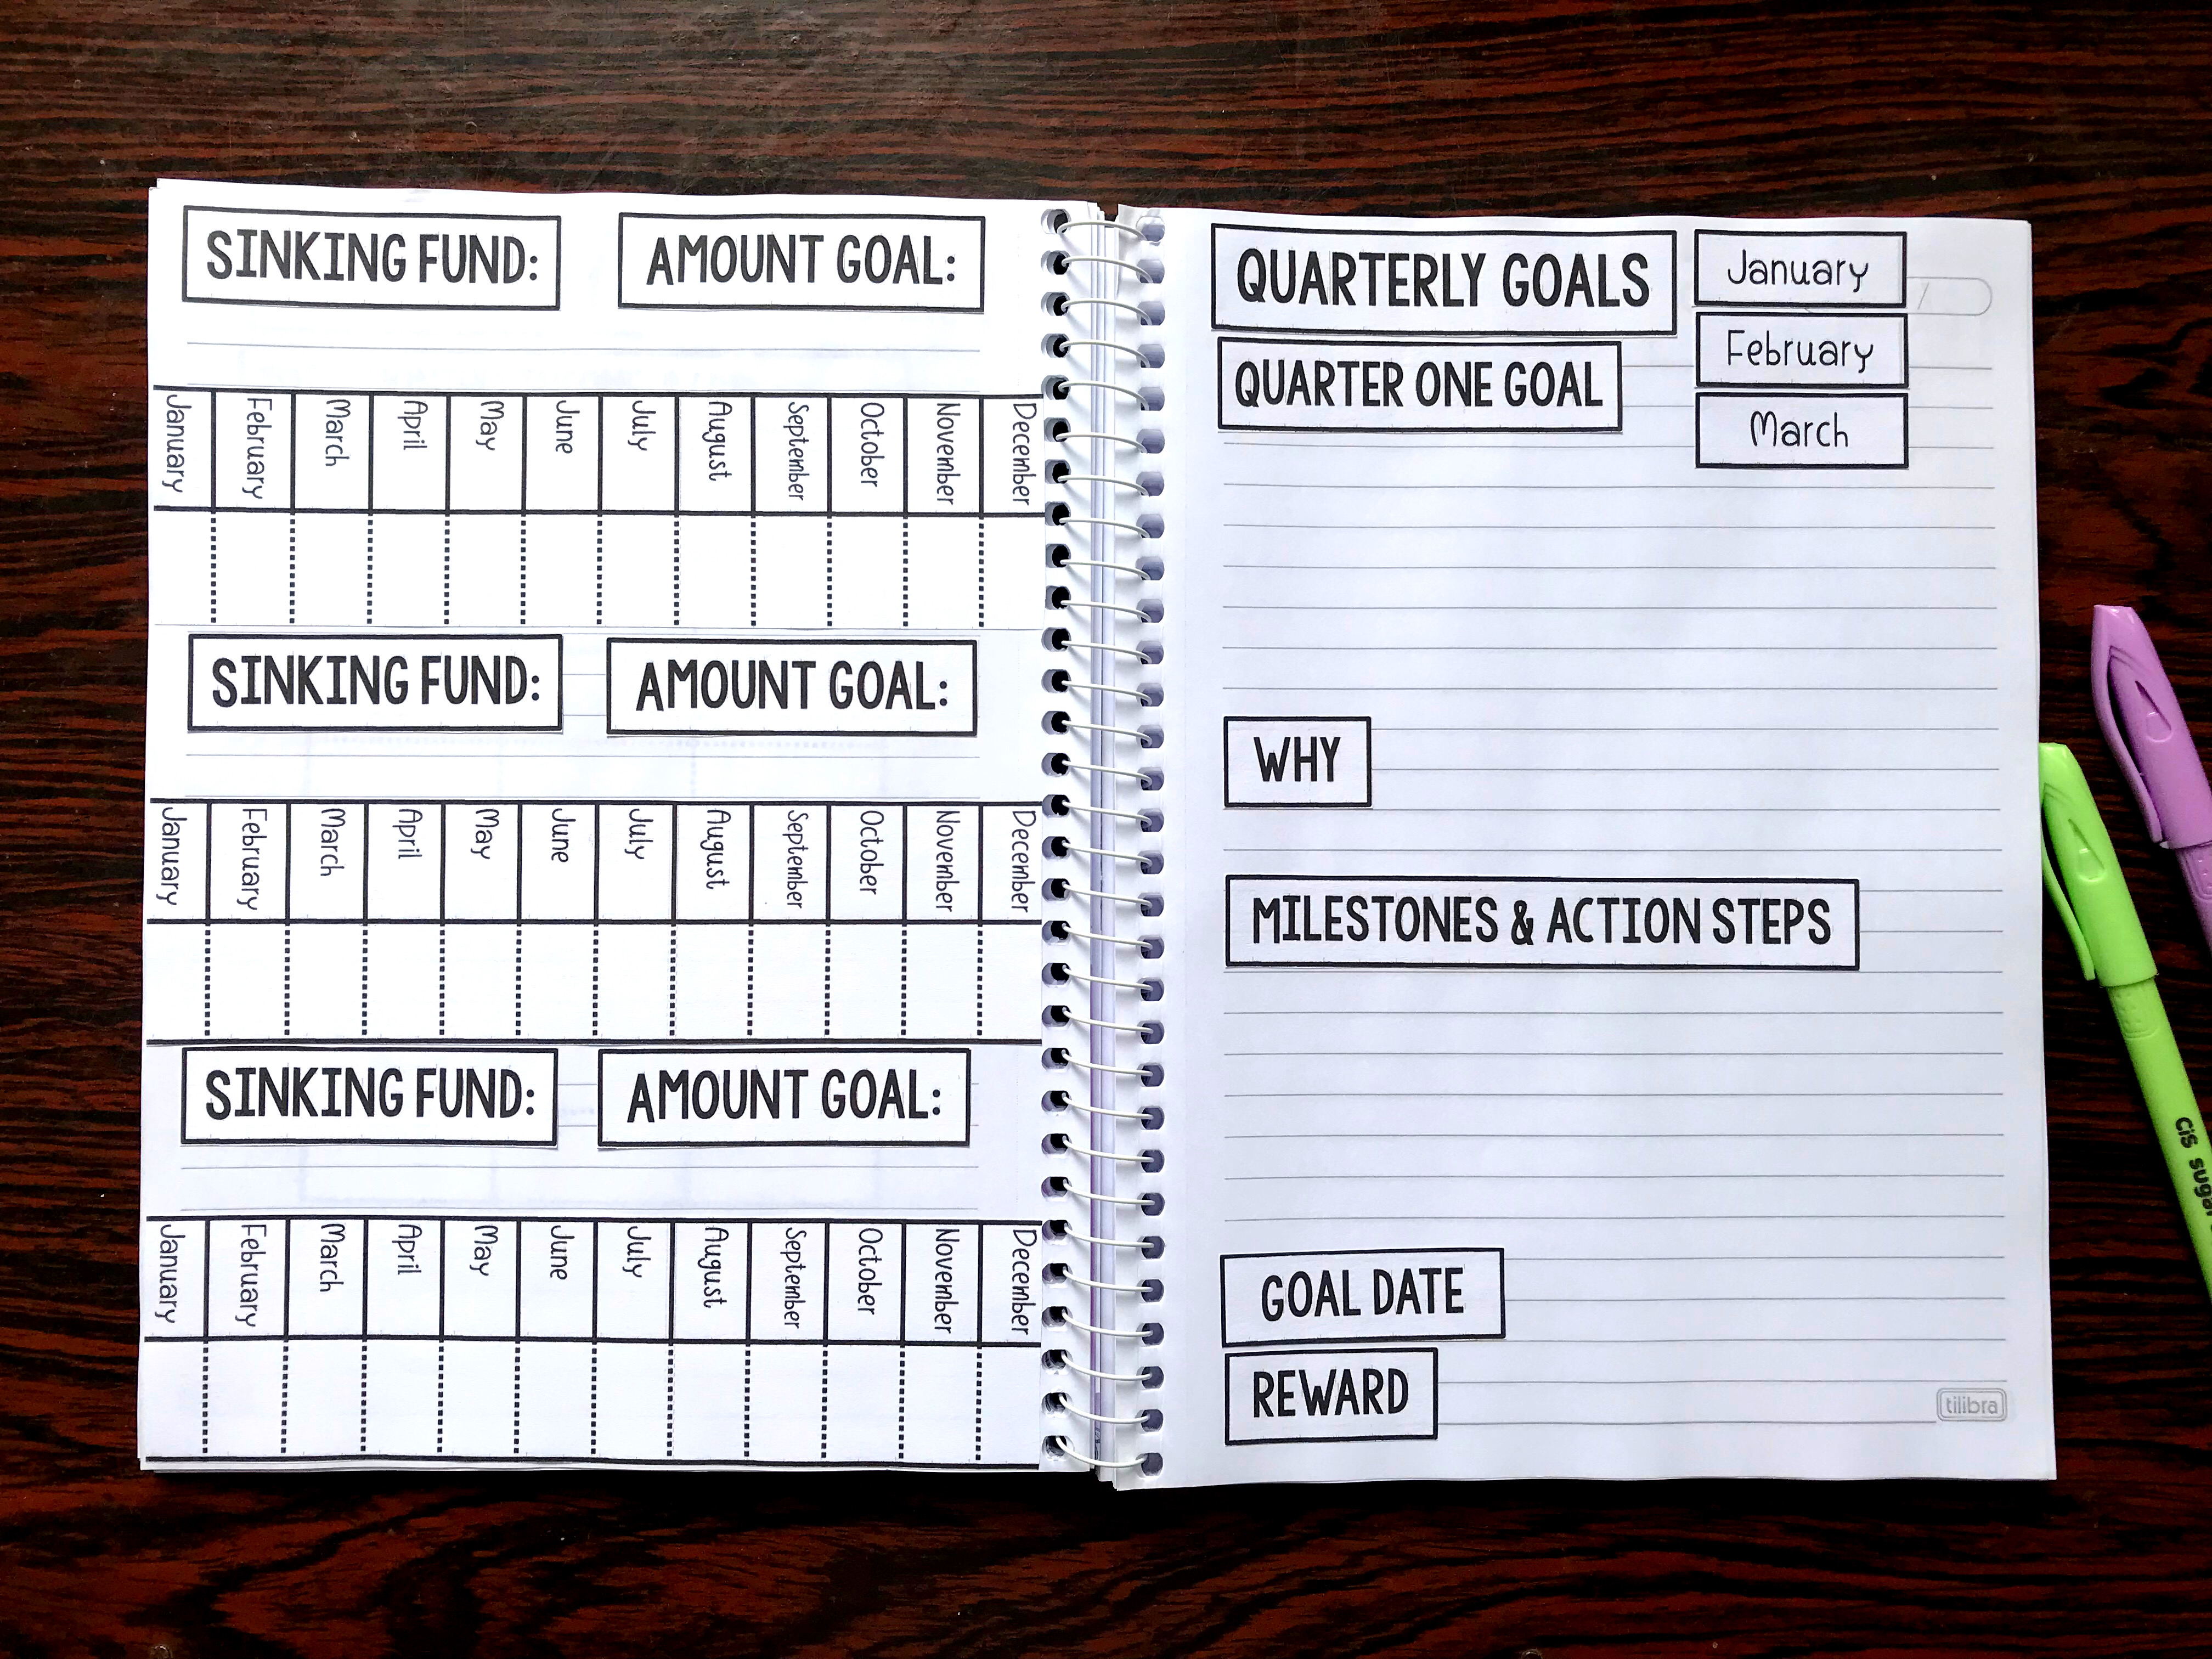 SINKING FUND: AMOUNT GOAL:
January February March April May June July August September October November December
SINKING FUND: AMOUNT GOAL:
January February March April May June July August September October November December
SINKING FUND: AMOUNT GOAL:
January February March April May June July August September October November December
QUARTERLY GOALS
January
February
QUARTER ONE GOAL
March
WHY
MILESTONES & ACTION STEPS
GOAL DATE
REWARD
tilibra
CiS